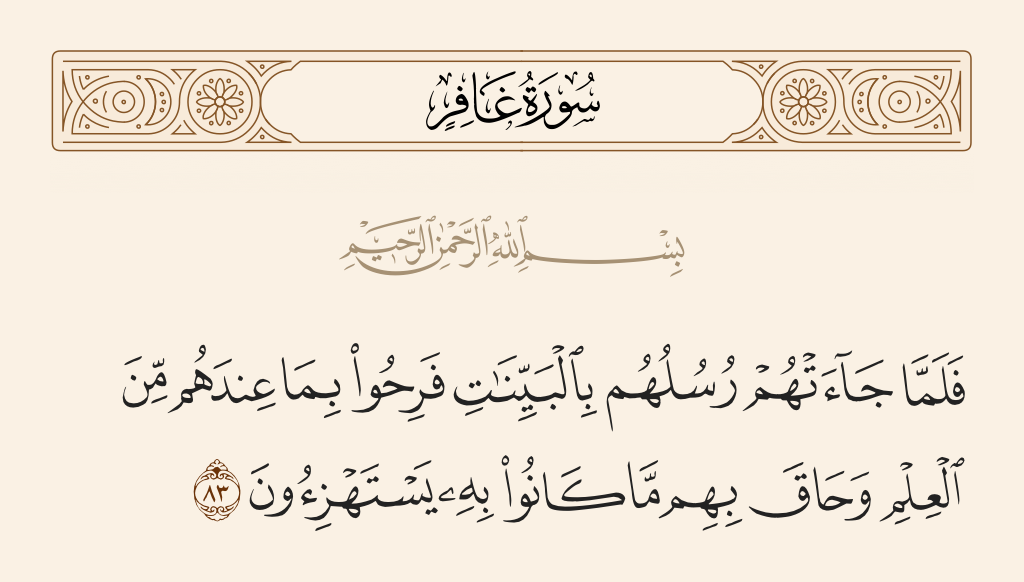 سُورَةُ غَافِرٍ
بِسْمِ ٱللَّهِ ٱلرَّحْمَٰنِ ٱلرَّحِيمِ
فَلَمَّا جَآءَتْهُمْ رُسُلُهُم بِٱلْبَيِّنَٰتِ فَرِحُوا۟ بِمَا عِندَهُم مِّنَ
ٱلْعِلْمِ وَحَاقَ بِهِم مَّا كَانُوا۟ بِهِۦ يَسْتَهْزِءُونَ ٨٣